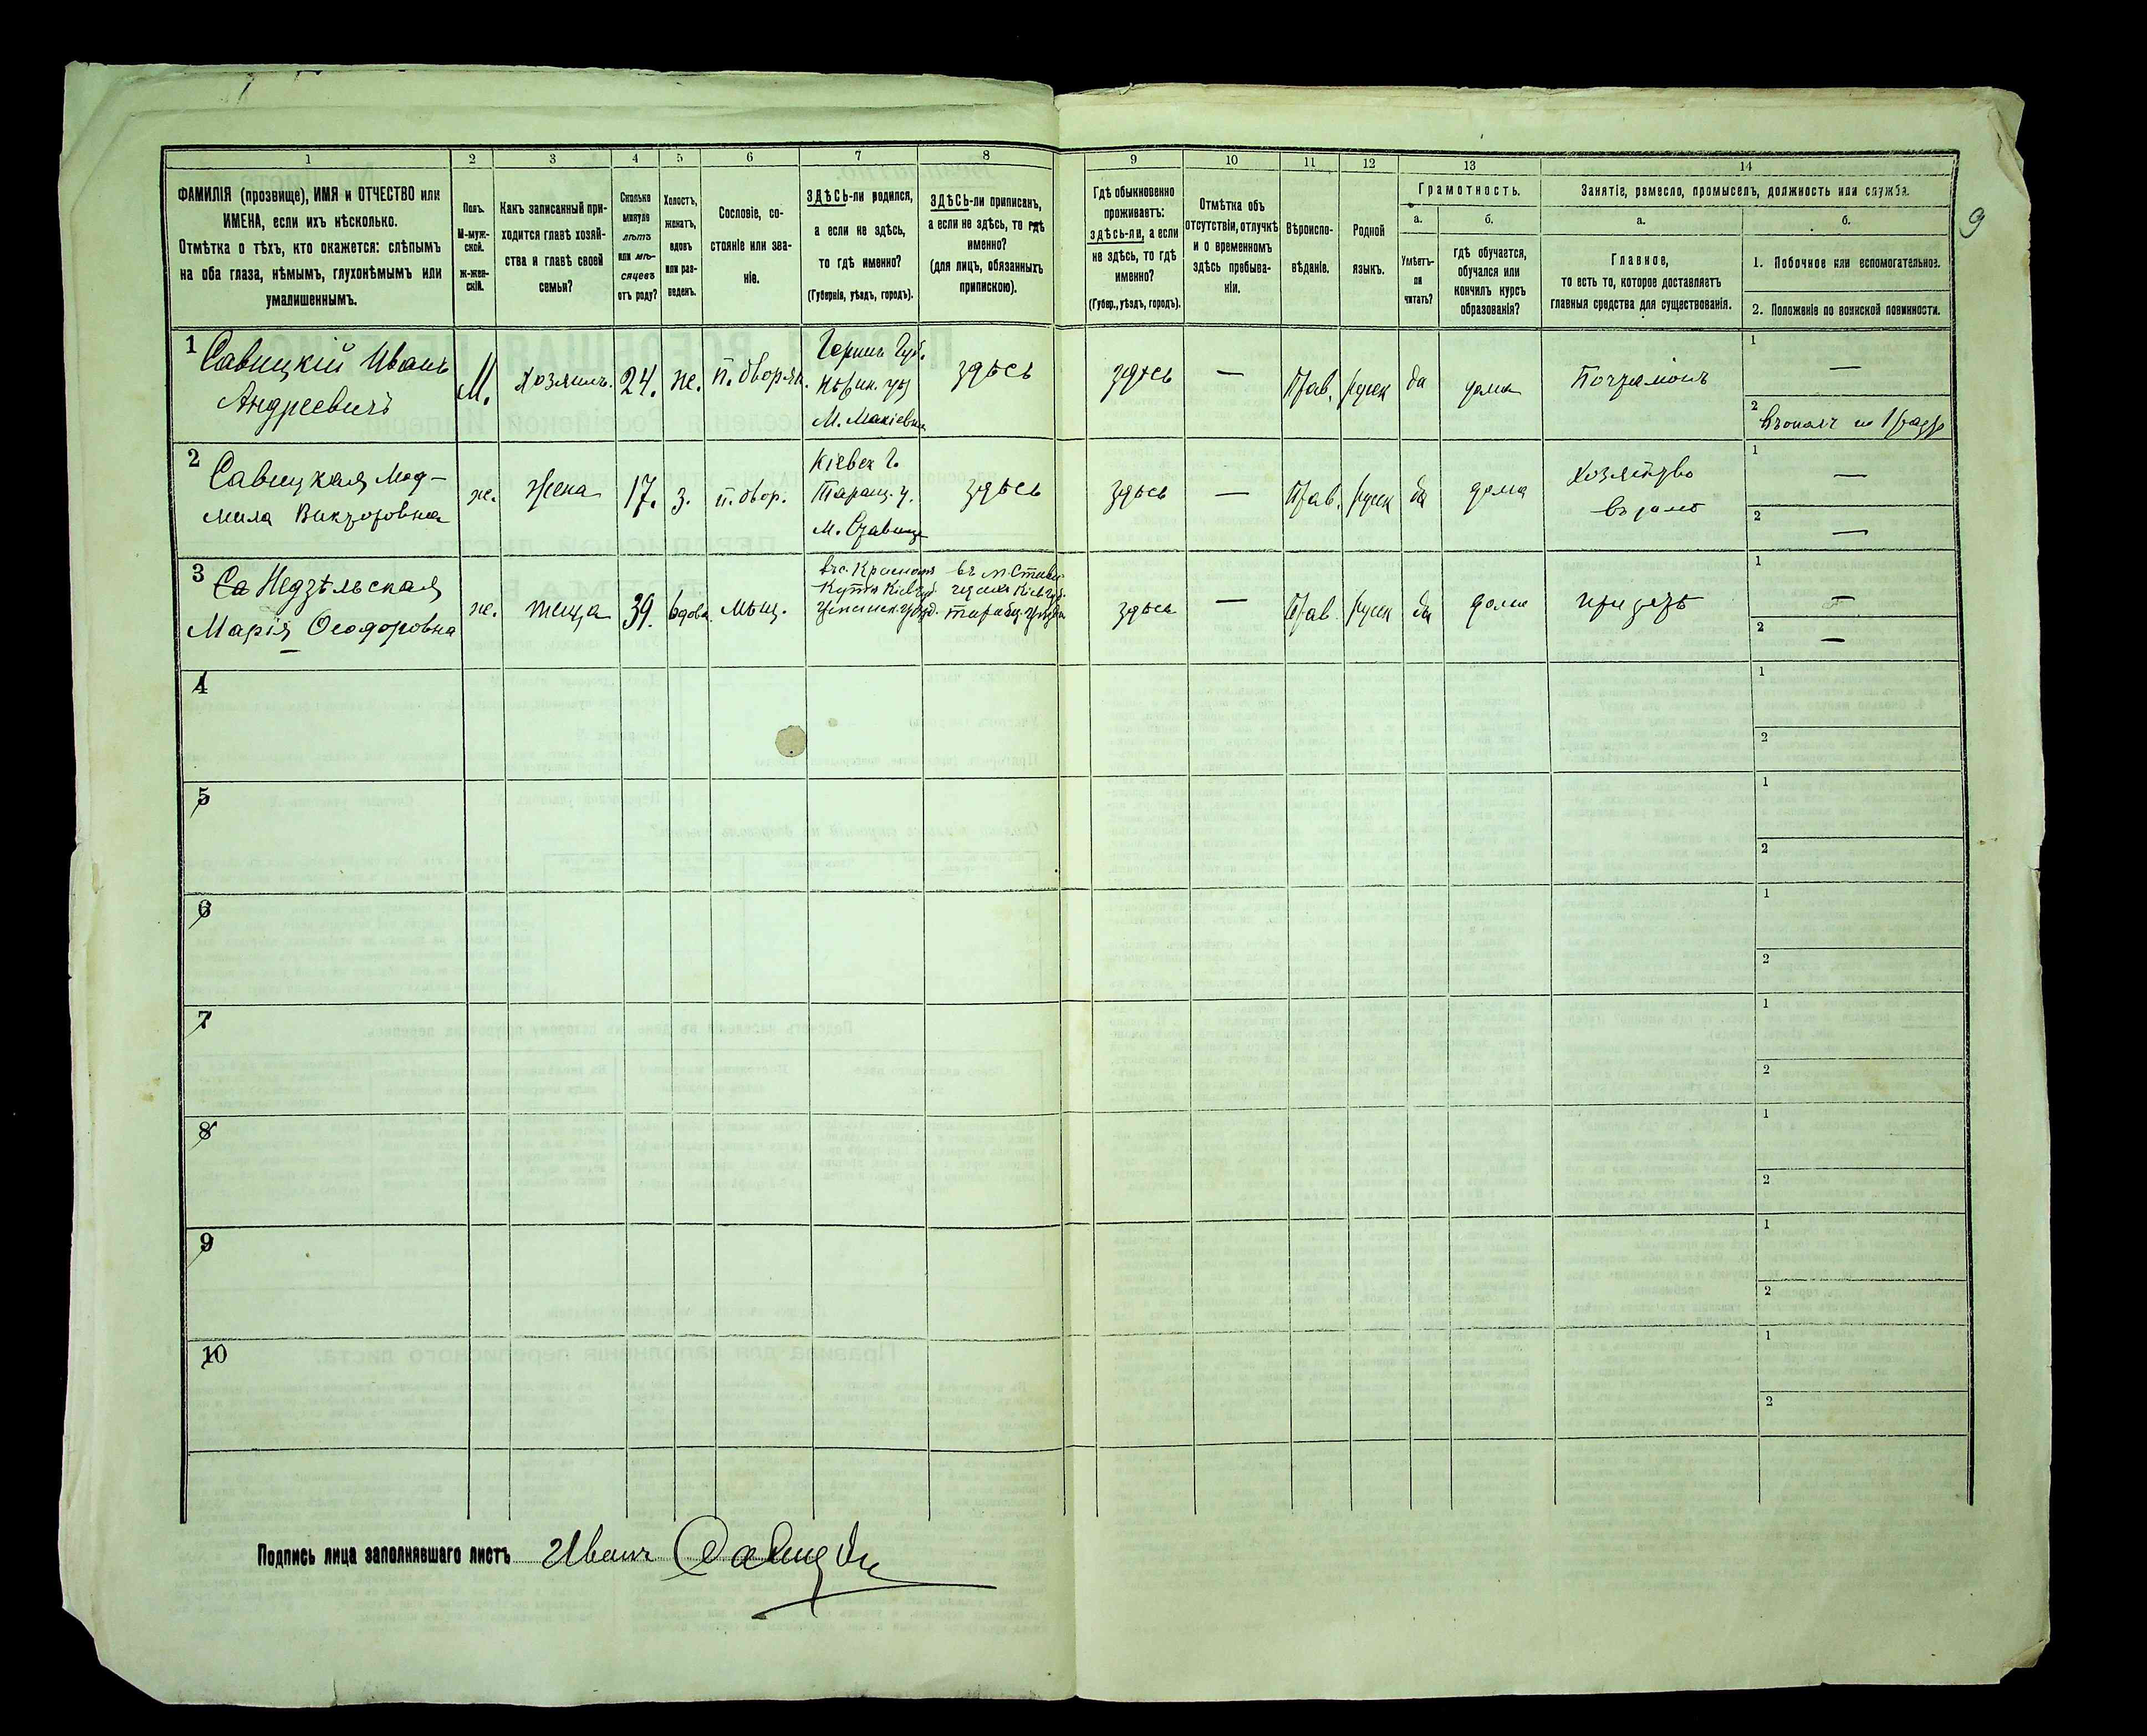 1 2 3 4 5 6 7 8 9 10 11 12 13 14
ФАМИЛІЯ (прозвище), ИМЯ и ОТЧЕСТВО или
ИМЕНА, если ихъ нѣсколько.
Отмѣтка о тѣхъ, кто окажется: слѣпымъ
на оба глаза, нѣмымъ, глухонѣмымъ или
умалишеннымъ.
Полъ.
М-муж-
ской.
Ж-жен-
скій.
Какъ записанный при-
ходится главѣ хозяй-
ства и главѣ своей
семьи?
Сколько
минуло
лѣтъ
или мѣ-
сяцевъ
отъ роду?
Холостъ,
женатъ,
вдовъ
или раз-
веденъ.
Сословіе, со-
стояніе или зва-
ніе.
ЗДѢСЬ-ли родился,
а если не здѣсь,
то гдѣ именно?
(Губернія, уѣздъ, городъ).
ЗДѢСЬ-ли приписанъ,
а если не здѣсь, то гдѣ
именно?
(для лицъ, обязанныхъ
припискою).
Гдѣ обыкновенно
проживаетъ:
здѣсь-ли, а если
не здѣсь, то гдѣ
именно?
(Губер., уѣздъ, городъ).
Отмѣтка объ
отсутствіи, отлучкѣ
и о временномъ
здѣсь пребыва-
ніи.
Вѣроиспо-
вѣданіе.
Родной
языкъ.
Грамотность.
а.
Умѣетъ-
ли
читать?
б.
гдѣ обучается,
обучался или
кончилъ курсъ
образованія?
Занятіе, ремесло, промыселъ, должность или служба.
а.
Главное,
то есть то, которое доставляетъ
главныя средства для существованія.
б.
1. Побочное или вспомогательное.
2. Положеніе по воинской повинности.
9
1 Савицкій Иванъ
Андреевичъ
М.
хозяинъ.
24.
же.
п. дворян.
Черниг. Губ.
Нѣжин. уѣз
М. Макіевка
здѣсь
здѣсь
—
Прав.
русск
да
дома
Почталіонъ
1
—
2
2 Савицкая Люд-
мила Викторовна
же.
Жена
17.
з.
п. двор.
Кіевск Г.
Таращ. у.
М. Ставище
здѣсь
здѣсь
—
Прав.
русск
да
дома
Хозяйство
въ домѣ
1
—
2
—
3 Са Недзѣльская
Марія Ѳеодоровна
же.
теща
39.
вдова
мѣщ.
здѣсь
—
Прав.
русск
да
дома
при зятѣ
1
—
2
—
4
1
2
5
1
2
6
1
2
7
1
2
8
1
2
9
1
2
10
1
2
Подпись лица заполнявшаго листъ Иванъ Савицкій